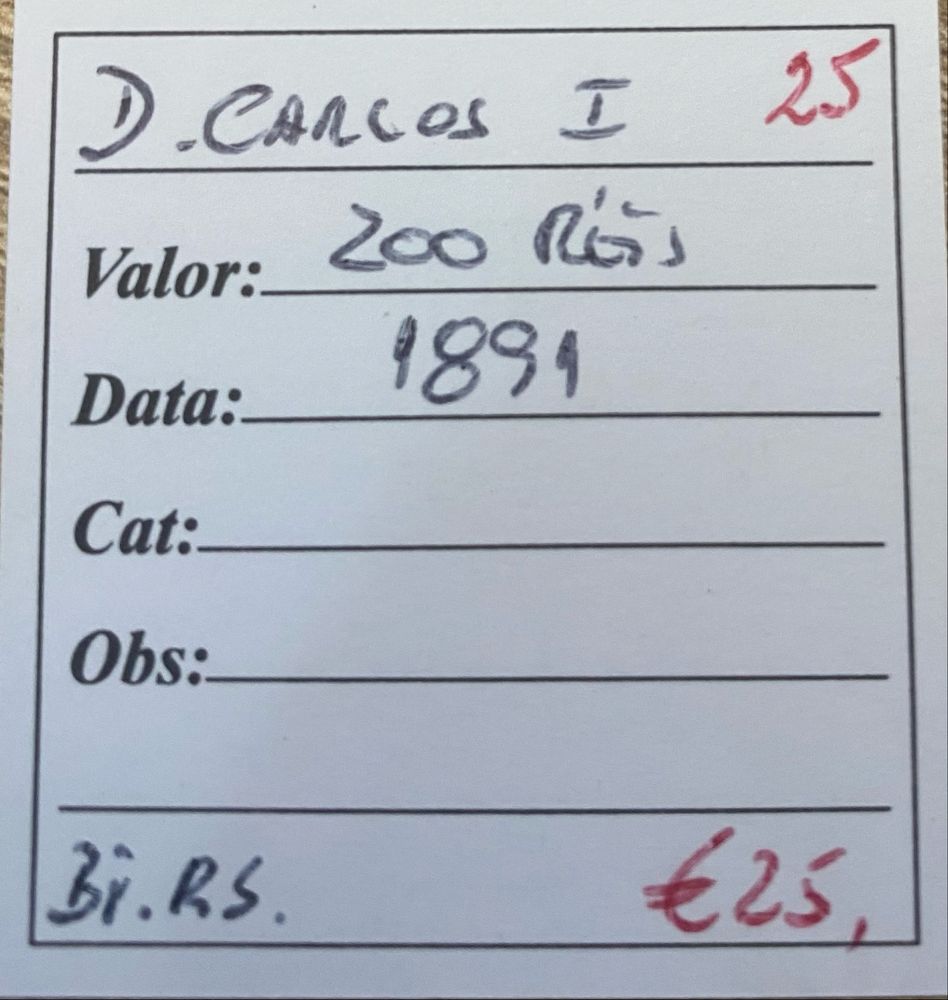 D. CARLOS I 25
Valor: 200 Réis
Data: 1891
Cat:
Obs:
Bi. RS. €25,